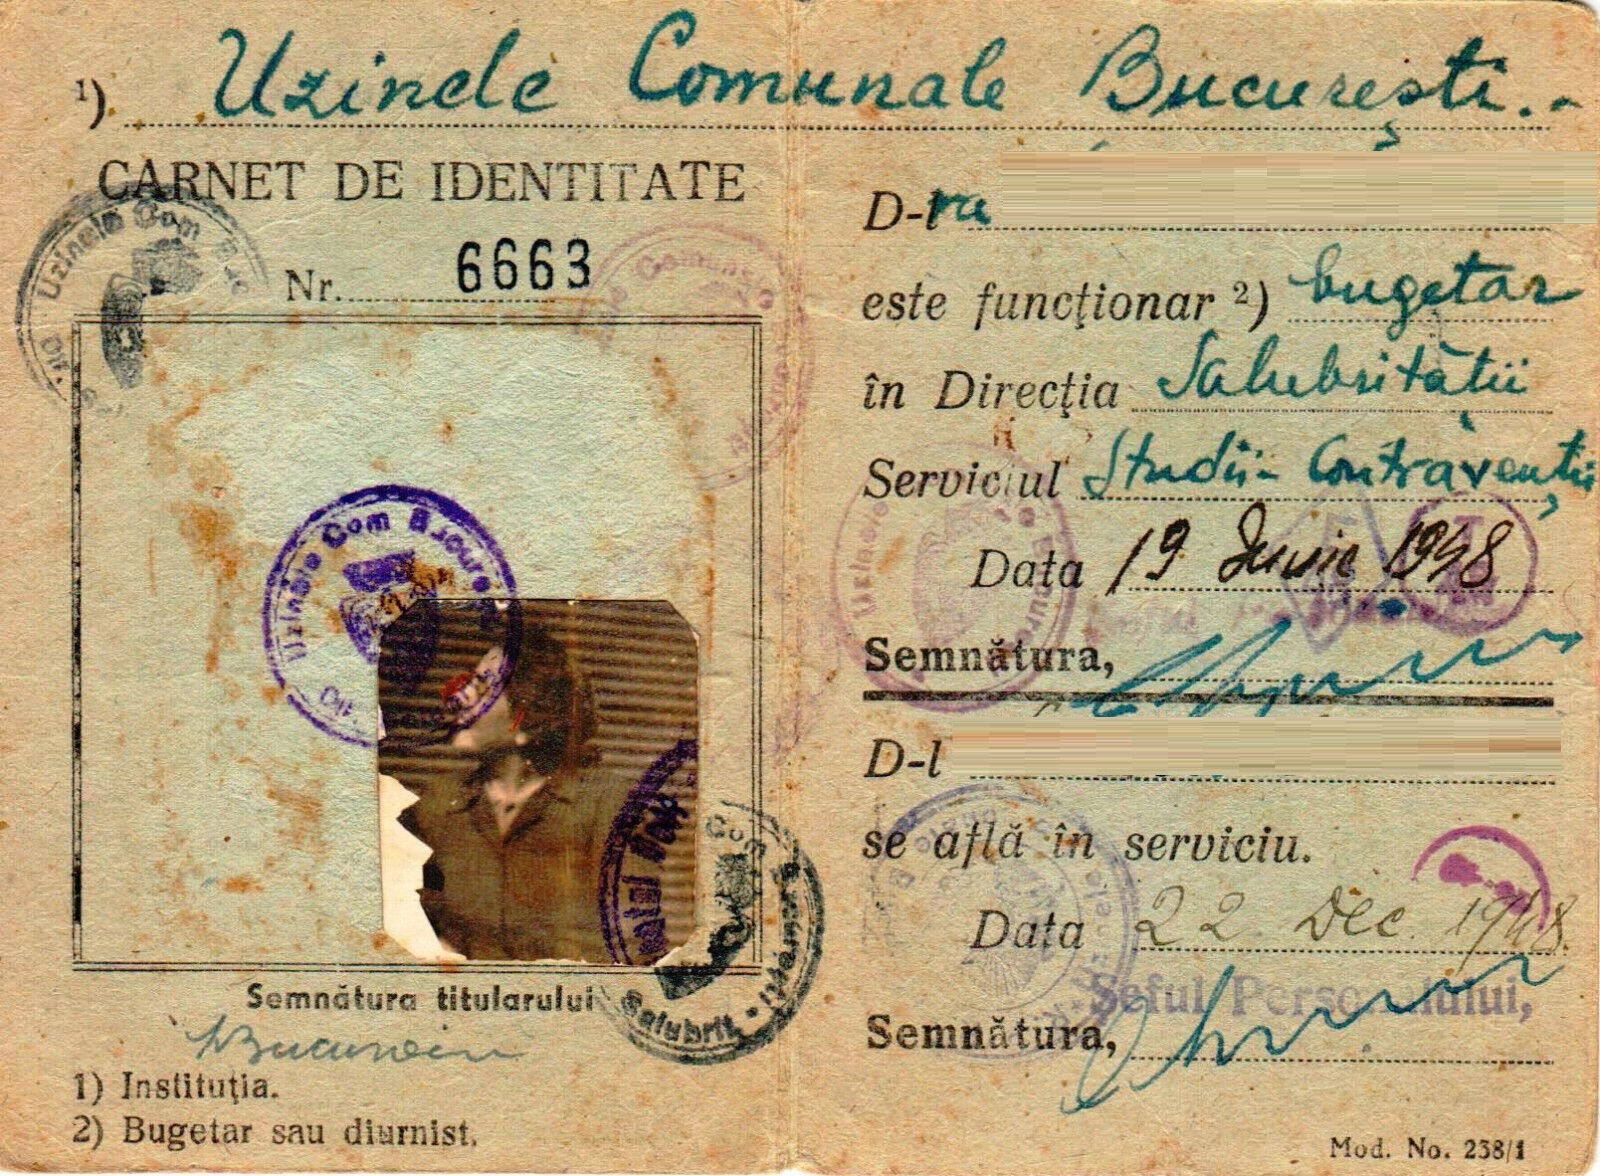 1) Uzinele Comunale București.-
CARNET DE IDENTITATE
Nr. 6663
Semnătura titularului
1) Instituția.
2) Bugetar sau diurnist.
D-ra
este funcționar 2) bugetar
în Direcția Salubrității
Serviciul Studii- Contravenții
Data 19 Iunie 1948
Semnătura,
D-l
se află în serviciu.
Data 22 Dec. 1948.
Șeful Personalului,
Semnătura,
Mod. No. 238/1
Uzinele Com București
Salubrit